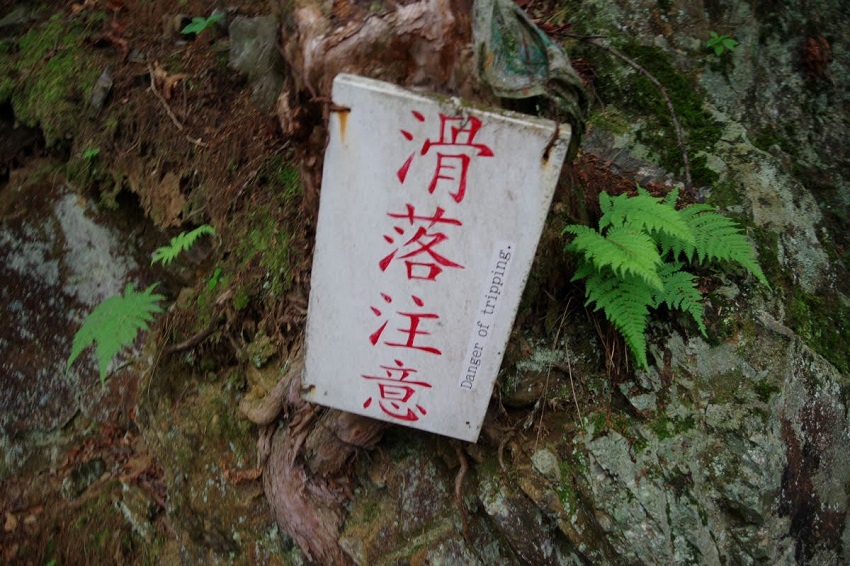 滑落注意
Danger of tripping.